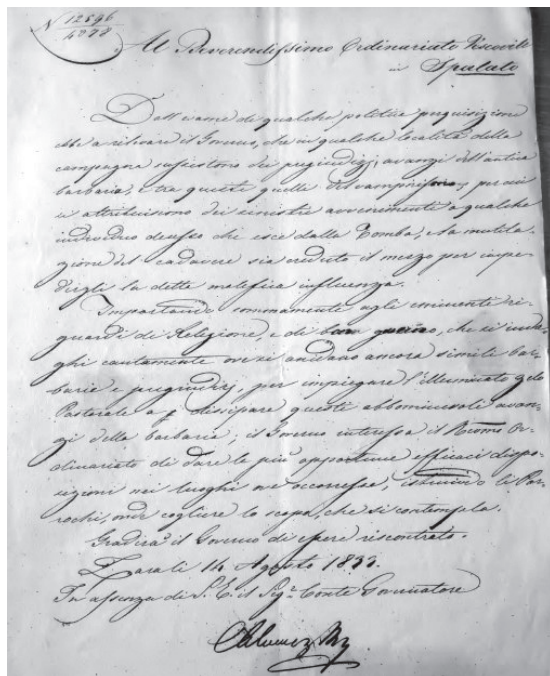 N 12596
4278
Al Reverendissimo Ordinariato Vescovile
in Spalato
Dall'esame di qualche politica perquisizione
ebbe a rilevare il Governo, che in qualche località della
campagna sussistono dei pregiudizj, avanzi dell'antica
barbarie, e tra questi quello del vampirismo, per cui
si attribuiscono dei sinistri avvenimenti a qualche
individuo defunto che esce dalla Tomba, e la mutila-
zione del cadavere sia creduto il mezzo per impe-
dirgli la detta malefica influenza.
Importando sommamente agli eminenti ri-
guardi di Religione, e di buon governo, che si inda-
ghi cautamente ove si annidano ancora simili bar-
barie e pregiudizj, per impiegare l'illuminato zelo
Pastorale a dissipare questi abbominevoli avan-
zi della barbarie, il Governo interessa il Or-
dinariato di dare le più opportune efficaci dispo-
sizioni nei luoghi ove occorresse, istruendo li Par-
rochi, onde cogliere lo scopo, che si contempla.
Gradirà il Governo di essere riscontrato.
Zara li 14 Agosto 1833.
In assenza di S. E. il Sigr. Conte Governatore